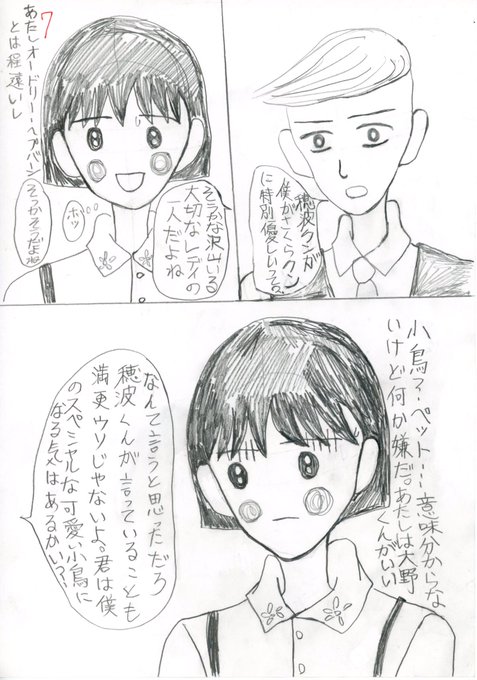 7
穂波クンが
僕がさくらクン
に特別優しいって。
そうかな沢山いる
大切なレディの
一人だよね
ホッ
そっかそうだよね
あたしオードリー・ヘプバーン
とは程遠いし
小鳥?・ペット…意味分からな
いけど何か嫌だ。あたしは大野
くんがいい
なんて言うと思っただろ
穂波くんが言っていることも
満更ウソじゃないよ。君は僕
のスペシャルな可愛い小鳥に
なる気はあるかい?